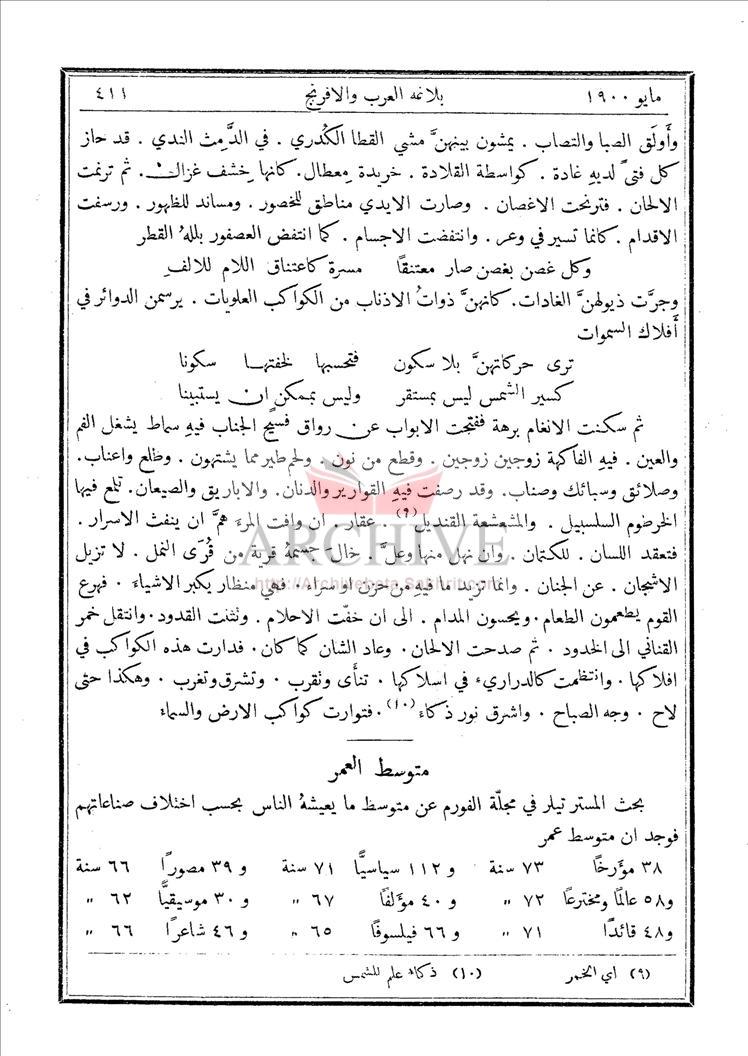 مايو ١٩٠٠ بلاغة العرب والافرنج ٤١١
وأَولَق الصبا والتصاب . يمشون بينهنَّ مشي القطا الكُدري . في الدَّمِث الندي . قد حاز
كل فتىً لديهِ غادة . كواسطة القلادة . خريدة مِعطال. كانها خِشف غزالٍ. ثم ترنمت
الالحان . فترنحت الاغصان . وصارت الايدي مناطق للخصور . ومساند للظهور . ورسفت
الاقدام . كانما تسير في وعر . وانتفضت الاجسام . كما انتفض العصفور بللهُ القطر
وكل غصن بغصن صار معتنقًا مسرة كاعتناق اللام للالف
وجرَّت ذيولهنَّ الغادات. كانهنَّ ذواتُ الاذناب من الكواكب العلويات . يرسمن الدوائر في
أَفلاك السموات
ترى حركاتهنَّ بلا سكون فتحسبها لخفتها سكونا
كسير الشمس ليس بمستقر وليس بممكنٍ ان يستبينا
ثم سكنت الانغام برهة ففتحت الابواب عن رواق فسيح الجناب فيهِ سماط يشغل الفم
والعين . فيهِ الفاكهة زوجين زوجين . وقطع من نون . ولحم طير مما يشتهون . وطلع واعناب.
وصلائق وسبائك وصناب. وقد رصفت فيهِ القوارير والدنان. والاباريق والصيعان. تلمع فيها
الخرطوم السلسبيل . والمشعشعة القنديل(٩) . عقار . ان وافت المرءَ همَّ ان ينفث الاسرار .
فتعقد اللسان . للكتمان . وان نهل منها وعلَّ . خال جسمهُ قرية من قُرَى النمل . لا تزيل
الاشجان . عن الجنان . وانما تزيد ما فيه من حزن او سراء . فهي منظار يكبر الاشياء . فهرع
القوم يطعمون الطعام . ويحسون المدام . الى ان خفَّت الاحلام . وتثنت القدود . وانتقل خمر
القناني الى الخدود . ثم صدحت الالحان . وعاد الشان كما كان . فدارت هذه الكواكب في
افلاكها . وانتظمت كالدراريء في اسلاكها . تنأى وتقرب . وتشرق وتغرب . وهكذا حتى
لاح . وجه الصباح . واشرق نور ذكاء(١٠) . فتوارت كواكب الارض والسماء
متوسط العمر
بحث المستر تيلر في مجلّة الفورم عن متوسط ما يعيشهُ الناس بحسب اختلاف صناعاتهم
فوجد ان متوسط عمر
٣٨ مؤرخًا ٧٣ سنة و ١١٢ سياسيًّا ٧١ سنة و ٣٩ مصورًا ٦٦ سنة
و٥٨ عالمًا ومخترعًا ٧٢ " و ٤٠ مؤلفًا ٦٧ " و ٣٠ موسيقيًّا ٦٢ "
و٤٨ قائدًا ٧١ " و ٦٦ فيلسوفًا ٦٥ " و ٤٦ شاعرًا ٦٦ "
(٩) اي الخمر (١٠) ذكاء علم للشمس
ARCHIVE
http://Archivebeta.Sakhrit.com